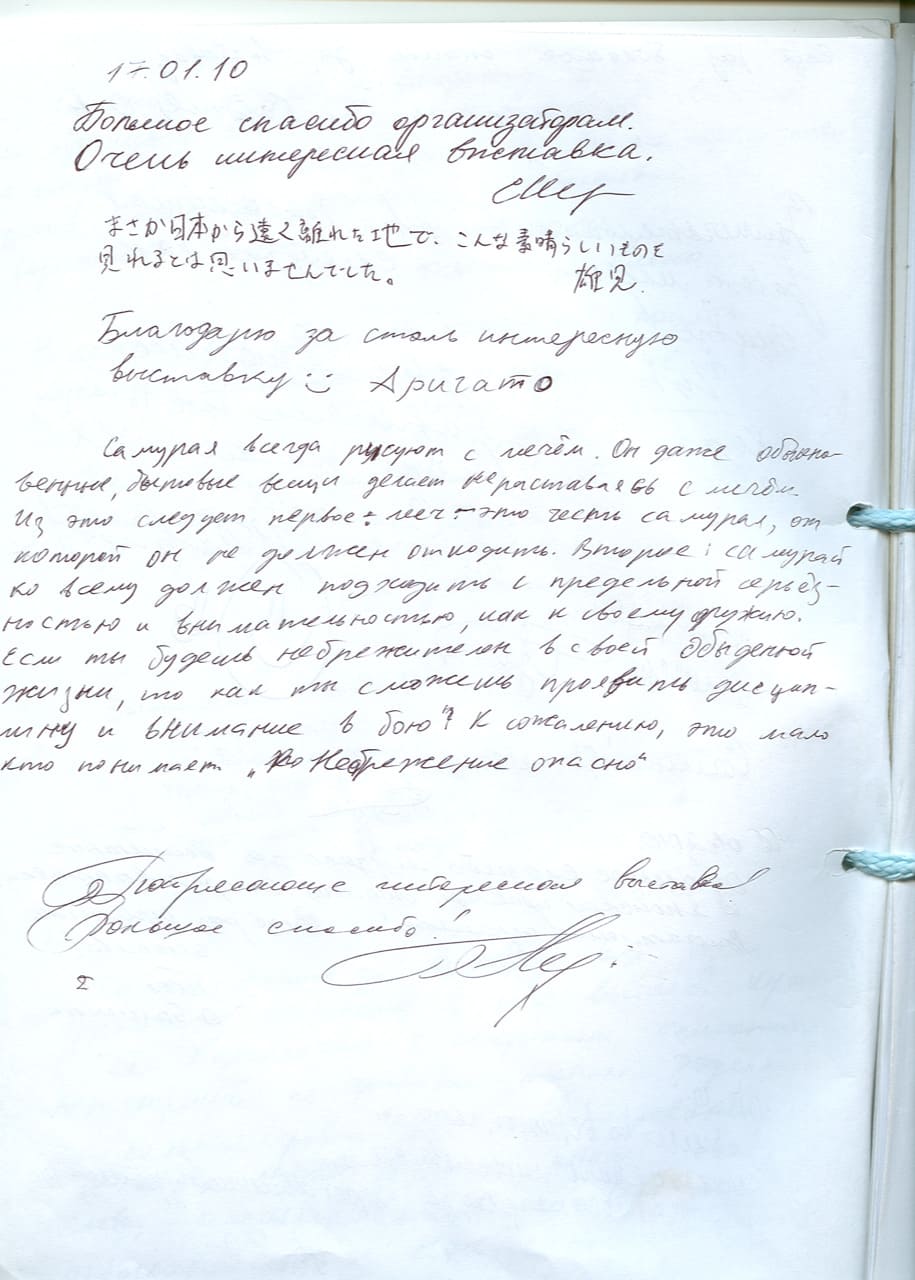 17.01.10
Большое спасибо организаторам.
Очень интересная выставка.
まさか日本から遠く離れた地で、こんな素晴らしいものを
見れるとは思いませんでした。 雄児
Благодарю за столь интересную
выставку :) Аригато
Самурая всегда рисуют с мечём. Он даже обыкно-
венные, бытовые вещи делает нерасставаясь с мечём.
Из это следует первое: меч – это честь самурая, от
которой он не должен отходить. Второе: самурай
ко всему должен подходить с предельной серьёз-
ностью и внимательностью, как к своему оружию.
Если ты будешь небрежителен в своей обыденной
жизни, то как ты сможешь проявить дисцип-
лину и внимание в бою"? К сожалению, это мало
кто понимает „Небрежение опасно"
Потрясающе интересная выставка!
Большое спасибо!